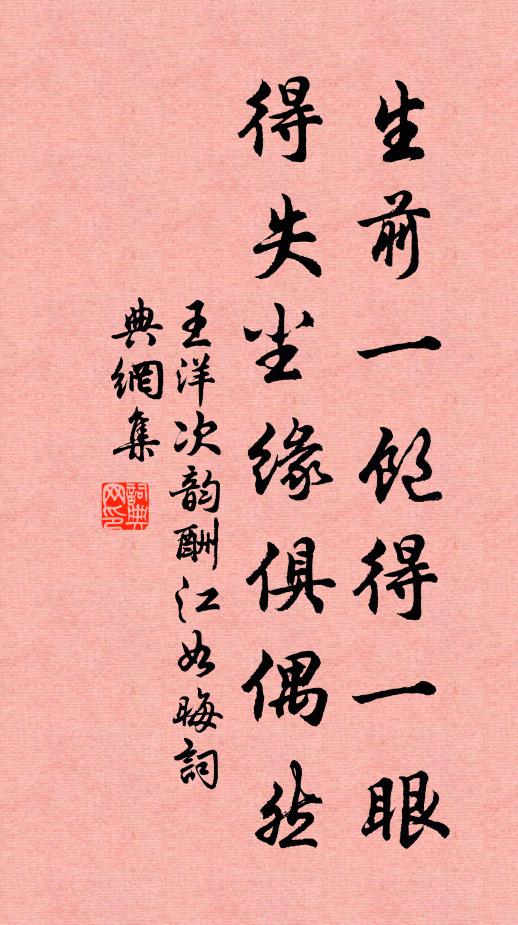 生前一飽得一眼
得失尘緣俱偶然
王洋次韵酬江如晦詞
典網集
詞典
网印